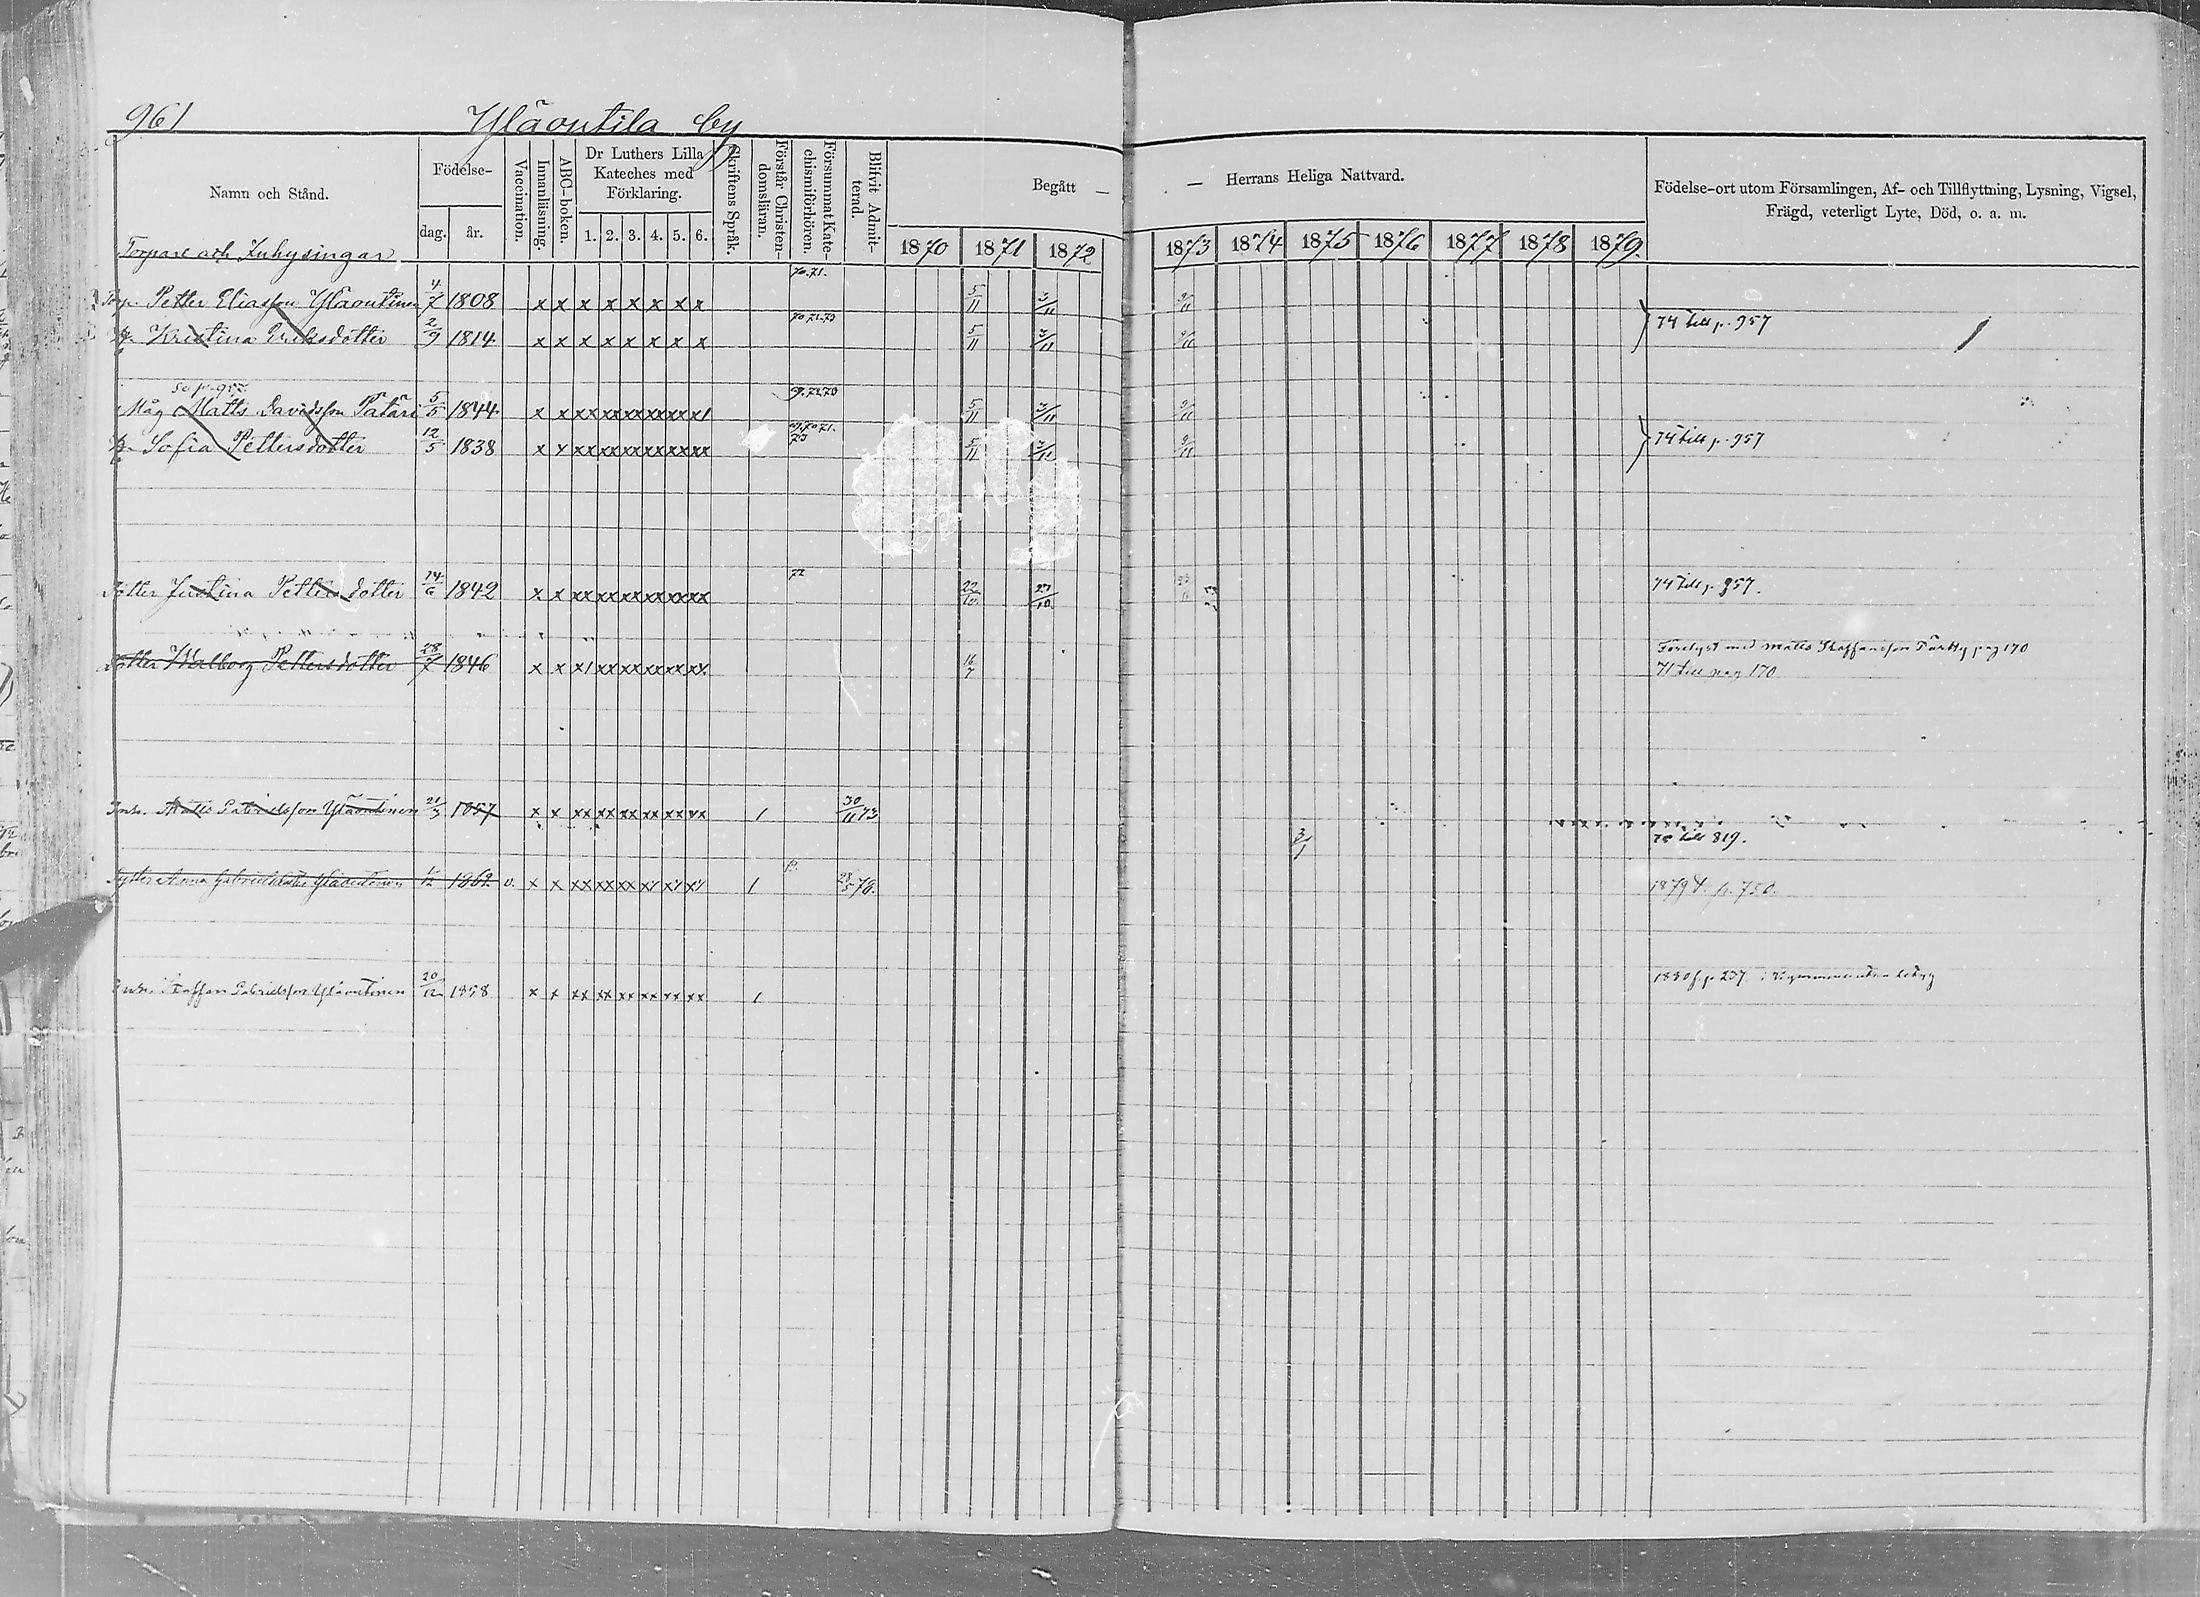 961 Yläoutila by
Namn och Stånd. Födelse- dag. år. Vaccination. Innanläsning. ABC-boken. Dr Luthers Lilla Kateches med Förklaring. 1. 2. 3. 4. 5. 6. Skriftens Språk. Förstår Christendomsläran. Försummat Katechismiförhören. Blifvit Admitterad. Begått — — Herrans Heliga Nattvard. Födelse-ort utom Församlingen, Af- och Tillflyttning, Lysning, Vigsel, Frägd, veterligt Lyte, Död, o. a. m.
1870 1871 1872 1873 1874 1875 1876 1877 1878 1879.
Torpare och Inhysingar
70.71.
Torp. Petter Eliasson Yläoutinen 4/7 1808 x x x x x x x x 5/11 3/11 9/11
70.71.73 74 till p. 957
H. Kristina Eriksdotter 2/9 1814 x x x x x x x x 5/11 3/11 9/11
Se p. 957
Måg Matts Davidsson Pätäri 5/5 1844 x x xx xx xx xx xx x1 5/11 3/11 9/11
69.70.71. 73
H. Sofia Pettersdotter 12/5 1838 x x xx xx xx xx xx xx 5/11 3/11 9/11 74 till p. 957
72
Dotter Justina Pettersdotter 14/6 1842 x x xx xx xx xx xx xx 22/10 27/10 74 till p. 957.
Förelyst med Matts Staffansson Pärtty pag 170
Dotter Walborg Pettersdotter 28/7 1846 x x x1 xx xx xx xx xx 16/7 71 till pag 170
Inh. Matts Gabrielsson Yläoutinen 21/3 1857 x x xx xx xx xx xx xx 1 30/11 73
3/1 75 till 819.
Syster Anna Gabrielsdotter Yläoutinen 1862 v. x x xx xx xx 1 28/5 78. 1879 t. p. 750.
Inh. Staffan Gabrielsson Yläoutinen 20/12 1858 x x xx xx xx xx xx xx 1 1880 f. p. 237